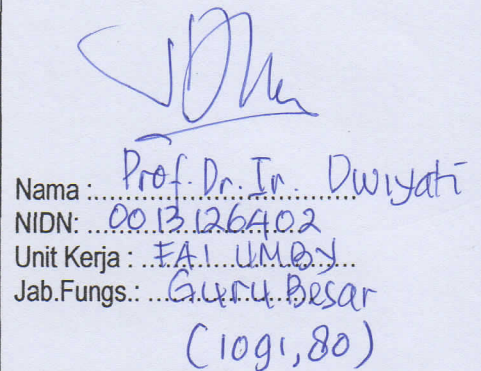 Nama : Prof. Dr. Ir. Dwiyati
NIDN: 0013126402
Unit Kerja : FAI UMBY
Jab.Fungs.: Guru Besar
(1091,80)